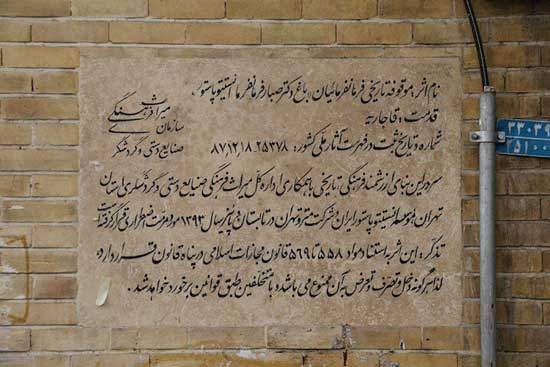 نام اثر: موقوفه تاریخی فرمانفرمائیان "باغ دکتر صبار فرمانفرما" انستیتو پاستور
قدمت: قاجاریه
شماره و تاریخ ثبت در فهرست آثار ملی کشور: ۲۵۳۷۸ ۸۷/۱۲/۱۸
میراث فرهنگی
سازمان
صنایع دستی و گردشگری
سر در این بنای ارزشمند فرهنگی، تاریخی با همکاری اداره کل میراث فرهنگی صنایع دستی و گردشگری استان
تهران، موسسه انستیتو پاستور ایران و شرکت مترو تهران در تابستان و پاییز سال ۱۳۹۳ مورد مرمت اضطراری قرار گرفته است
تذکر: این اثر به استناد مواد ۵۵۸ تا ۵۶۹ قانون مجازات اسلامی در پناه قانون قرار دارد،
لذا هر گونه دخل و تصرف و تعرض به آن ممنوع می باشد و با متخلفین طبق قوانین برخورد خواهد شد.